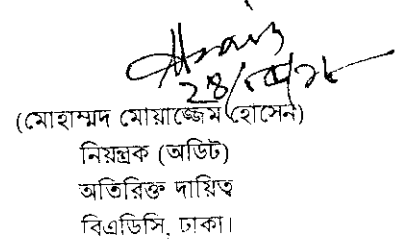 (মোহাম্মদ মোয়াজ্জেম হোসেন)
নিয়ন্ত্রক (অডিট)
অতিরিক্ত দায়িত্ব
বিএডিসি, ঢাকা।